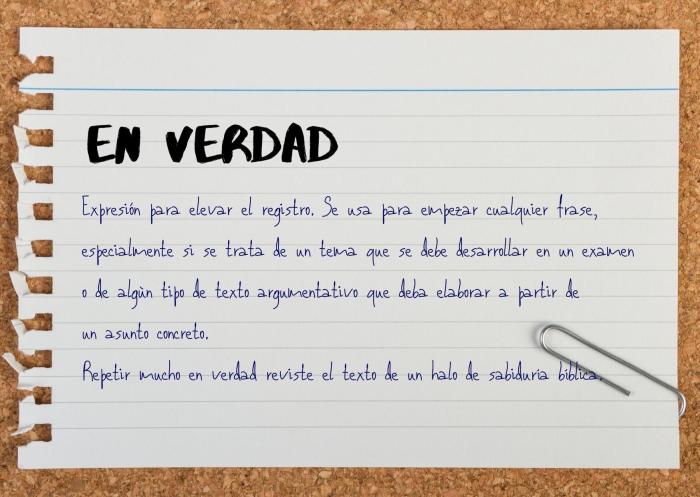 EN VERDAD
Expresión para elevar el registro. Se usa para empezar cualquier frase,
especialmente si se trata de un tema que se debe desarrollar en un examen
o de algún tipo de texto argumentativo que deba elaborar a partir de
un asunto concreto.
Repetir mucho en verdad reviste el texto de un halo de sabiduría bíblica.